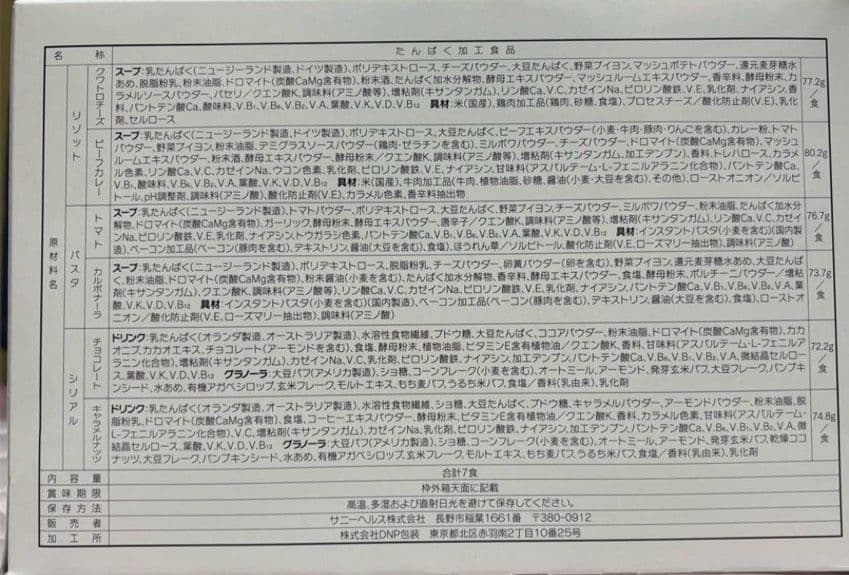 名称 たんぱく加工食品
原材料名
リゾット
クワトロチーズ
スープ:乳たんぱく(ニュージーランド製造、ドイツ製造)、ポリデキストロース、チーズパウダー、大豆たんぱく、野菜ブイヨン、マッシュポテトパウダー、還元麦芽糖水
あめ、脱脂粉乳、粉末油脂、ドロマイト(炭酸CaMg含有物)、粉末酒、たんぱく加水分解物、酵母エキスパウダー、マッシュルームエキスパウダー、香辛料、酵母粉末、カ
ラメルソースパウダー、パセリ/クエン酸K、調味料(アミノ酸等)、増粘剤(キサンタンガム)、リン酸Ca、V.C、カゼインNa、ピロリン酸鉄、V.E、乳化剤、ナイアシン、香
料、パントテン酸Ca、酸味料、V.B₁、V.B₆、V.B₂、V.A、葉酸、V.K、V.D、V.B₁₂ 具材:米(国産)、鶏肉加工品(鶏肉、砂糖、食塩)、プロセスチーズ/酸化防止剤(V.E)、乳化
剤、セルロース
77.2g/食
ビーフカレー
スープ:乳たんぱく(ニュージーランド製造、ドイツ製造)、ポリデキストロース、大豆たんぱく、ビーフエキスパウダー(小麦・牛肉・豚肉・りんごを含む)、カレー粉、トマト
パウダー、野菜ブイヨン、粉末油脂、デミグラスソースパウダー(鶏肉・ゼラチンを含む)、ミルポワパウダー、チーズパウダー、ドロマイト(炭酸CaMg含有物)、マッシュ
ルームエキスパウダー、粉末酒、酵母エキスパウダー、酵母粉末/クエン酸K、調味料(アミノ酸等)、増粘剤(キサンタンガム、加工デンプン)、香料、トレハロース、カラメ
ル色素、リン酸Ca、V.C、カゼインNa、ウコン色素、乳化剤、ピロリン酸鉄、V.E、ナイアシン、甘味料(アスパルテーム・L-フェニルアラニン化合物)、パントテン酸Ca、
V.B₁、酸味料、V.B₆、V.B₂、V.A、葉酸、V.K、V.D、V.B₁₂ 具材:米(国産)、牛肉加工品(牛肉、植物油脂、砂糖、醤油(小麦・大豆を含む)、その他)、ローストオニオン/ソルビ
トール、pH調整剤、調味料(アミノ酸)、酸化防止剤(V.E)、カラメル色素、香辛料抽出物
80.2g/食
パスタ
トマト
スープ:乳たんぱく(ニュージーランド製造)、トマトパウダー、ポリデキストロース、大豆たんぱく、野菜ブイヨン、チーズパウダー、ミルポワパウダー、粉末油脂、たんぱく加水分
解物、ドロマイト(炭酸CaMg含有物)、ガーリック、酵母粉末、酵母エキスパウダー、唐辛子/クエン酸K、調味料(アミノ酸等)、増粘剤(キサンタンガム)、リン酸Ca、V.C、カゼイ
ンNa、ピロリン酸鉄、V.E、乳化剤、ナイアシン、トウガラシ色素、パントテン酸Ca、V.B₁、V.B₆、V.B₂、V.A、葉酸、V.K、V.D、V.B₁₂ 具材:インスタントパスタ(小麦を含む)(国内製
造)、ベーコン加工品(ベーコン(豚肉を含む)、デキストリン、醤油(大豆を含む)、食塩)、ほうれん草/ソルビトール、酸化防止剤(V.E、ローズマリー抽出物)、調味料(アミノ酸)
76.7g/食
カルボナーラ
スープ:乳たんぱく(ニュージーランド製造)、ポリデキストロース、脱脂粉乳、チーズパウダー、卵黄パウダー(卵を含む)、野菜ブイヨン、還元麦芽糖水あめ、大豆たんぱく、
粉末油脂、ドロマイト(炭酸CaMg含有物)、粉末醤油(小麦を含む)、たんぱく加水分解物、香辛料、酵母エキスパウダー、食塩、酵母粉末、ポルチーニパウダー/増粘
剤(キサンタンガム)、クエン酸K、調味料(アミノ酸等)、リン酸Ca、V.C、カゼインNa、ピロリン酸鉄、V.E、乳化剤、ナイアシン、パントテン酸Ca、V.B₁、V.B₆、V.B₂、V.A、
葉酸、V.K、V.D、V.B₁₂ 具材:インスタントパスタ(小麦を含む)(国内製造)、ベーコン加工品(ベーコン(豚肉を含む)、デキストリン、醤油(大豆を含む)、食塩)、ローストオ
ニオン/酸化防止剤(V.E、ローズマリー抽出物)、調味料(アミノ酸)
73.7g/食
シリアル
チョコレート
ドリンク:乳たんぱく(オランダ製造、オーストラリア製造)、水溶性食物繊維、ブドウ糖、大豆たんぱく、ココアパウダー、粉末油脂、ドロマイト(炭酸CaMg含有物)、カカ
オニブ、カカオエキス、チョコレート(アーモンドを含む)、食塩、酵母粉末、植物油脂、ビタミンE含有植物油/クエン酸K、香料、甘味料(アスパルテーム・L-フェニルア
ラニン化合物)、増粘剤(キサンタンガム)、カゼインNa、V.C、乳化剤、ピロリン酸鉄、ナイアシン、加工デンプン、パントテン酸Ca、V.B₆、V.B₁、V.B₂、V.A、微結晶セルロー
ス、葉酸、V.K、V.D、V.B₁₂ グラノーラ:大豆パフ(アメリカ製造)、ショ糖、コーンフレーク(小麦を含む)、オートミール、アーモンド、発芽玄米パフ、大豆フレーク、パンプキ
ンシード、水あめ、有機アガベシロップ、玄米フレーク、モルトエキス、もち麦パフ、うるち米パフ、食塩/香料(乳由来)、乳化剤
72.2g/食
キャラメルナッツ
ドリンク:乳たんぱく(オランダ製造、オーストラリア製造)、水溶性食物繊維、ショ糖、大豆たんぱく、ブドウ糖、キャラメルパウダー、アーモンドパウダー、粉末油脂、脱
脂粉乳、ドロマイト(炭酸CaMg含有物)、食塩、コーヒーエキスパウダー、酵母粉末、ビタミンE含有植物油/クエン酸K、香料、カラメル色素、甘味料(アスパルテーム・
L-フェニルアラニン化合物)、V.C、増粘剤(キサンタンガム)、カゼインNa、乳化剤、ピロリン酸鉄、ナイアシン、加工デンプン、パントテン酸Ca、V.B₆、V.B₁、V.B₂、V.A、微
結晶セルロース、葉酸、V.K、V.D、V.B₁₂ グラノーラ:大豆パフ(アメリカ製造)、ショ糖、コーンフレーク(小麦を含む)、オートミール、アーモンド、発芽玄米パフ、乾燥ココ
ナッツ、大豆フレーク、パンプキンシード、水あめ、有機アガベシロップ、玄米フレーク、モルトエキス、もち麦パフ、うるち米パフ、食塩/香料(乳由来)、乳化剤
74.8g/食
内容量 合計7食
賞味期限 枠外箱天面に記載
保存方法 高温、多湿および直射日光を避けて保存してください。
販売者 サニーヘルス株式会社 長野市稲葉1661番 〒380-0912
加工所 株式会社DNP包装 東京都北区赤羽南2丁目10番25号